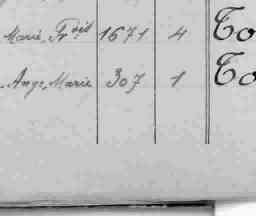 Marie, Fr çoise 1671 4 To
Ange, Marie 307 1 To